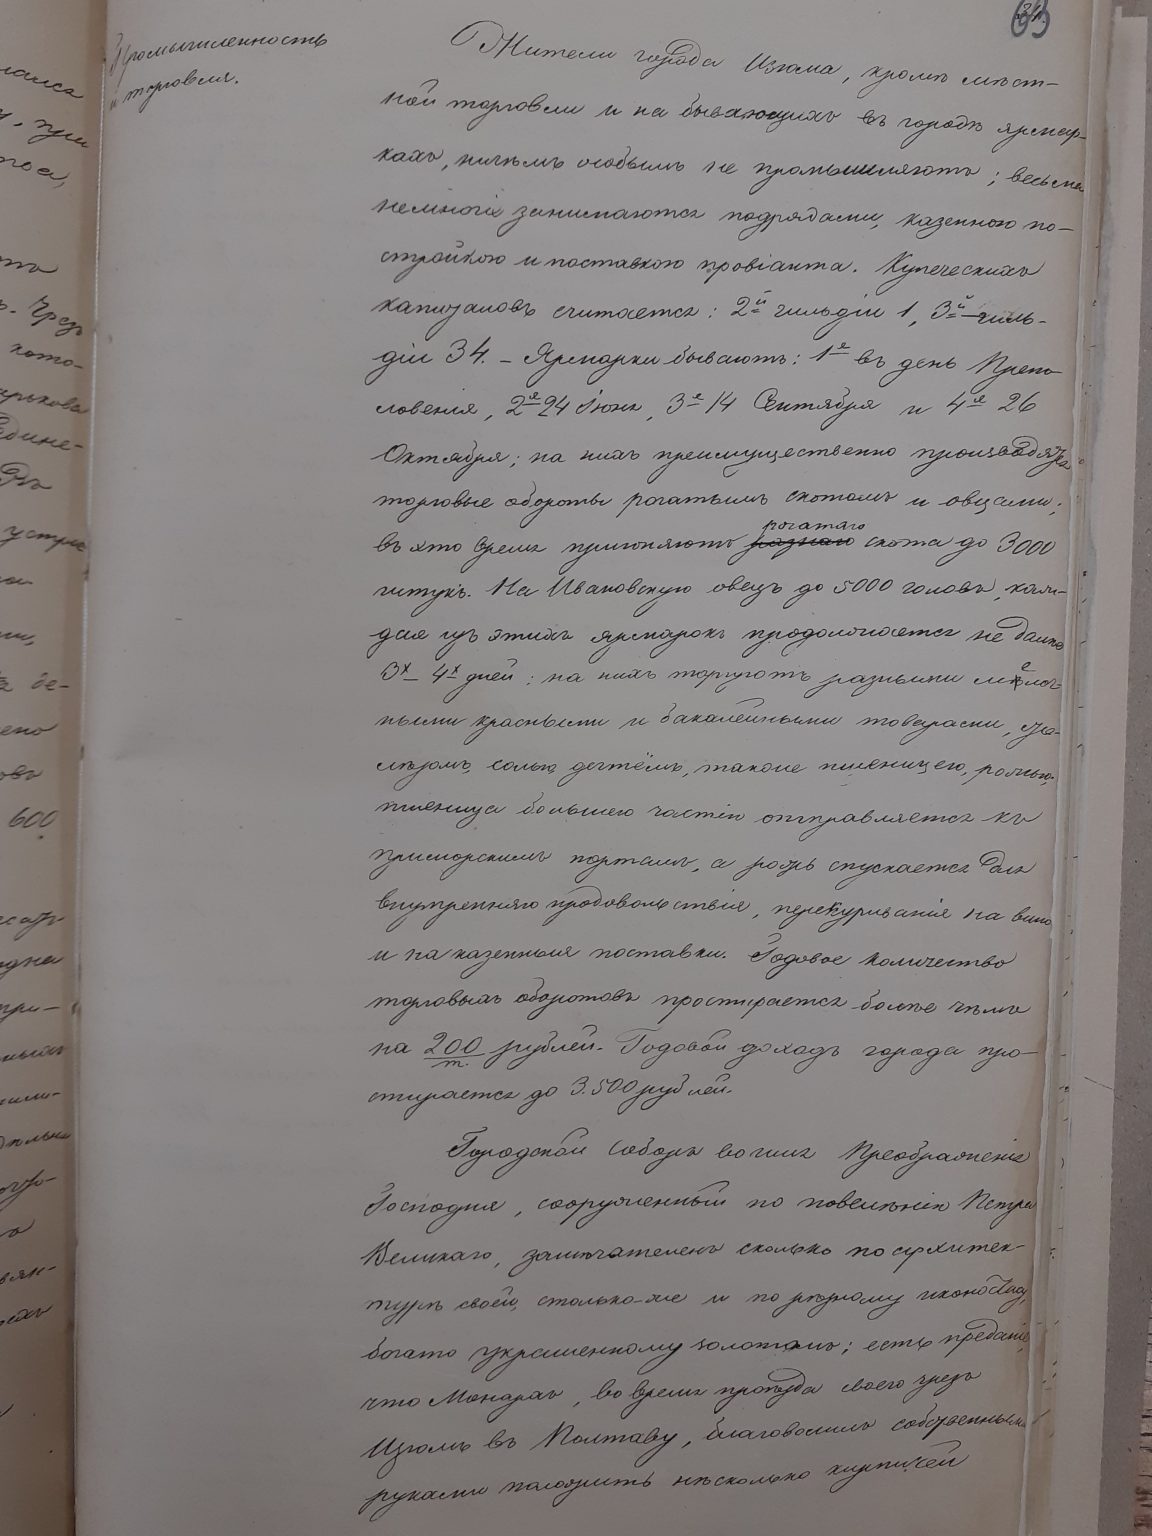 Промышленность
и торговля.
Жители города Изюма, кромѣ мѣст-
ной торговли и на бывающихъ въ городѣ ярмар-
кахъ, ничѣмъ особымъ не промышляютъ; весьма
немногіе занимаются подрядами, казенною по-
стройкою и поставкою провіанта. Купеческихъ
капиталовъ считается: 2й гильдіи 1, 3й гиль-
діи 34. – Ярмарки бываютъ: 1я въ день Препо-
ловенія, 2я 24 Іюня, 3я 14 Сентября и 4я 26
Октября; на нихъ преимущественно производятся
торговые обороты рогатымъ скотомъ и овцами;
въ это время пригоняютъ рогатаго скота до 3000
штукъ. На Ивановскую овецъ до 5000 головъ, каж-
дая изъ этихъ ярмарокъ продолжается не далѣе
3х 4х дней; на нихъ торгуютъ разными мелоч-
ными красными и бакалейными товарами,
солью, дегтёмъ, также пшеницею, рожью,
пшеница большею частію отправляется къ
приморскимъ портамъ, а рожь спускается для
внутренняго продовольствія, перекуриванія на вино
и на казенныя поставки. Годовое количество
торговыхъ оборотовъ простирается болѣе чѣмъ
на 200 т. рублей. Годовой доходъ города про-
стирается до 3.500 рублей.
Городской Соборъ во имя Преображенія
Господня, сооруженный по повелѣнію Петра
Великаго, замѣчателенъ сколько по архитек-
турѣ своей, столько-же и по рѣзному иконостасу,
богато украшенному золотомъ; есть преданіе,
что Монархъ, во время проѣзда своего чрезъ
Изюмъ въ Полтаву, благоволилъ собственными
руками положить нѣсколько кирпичей